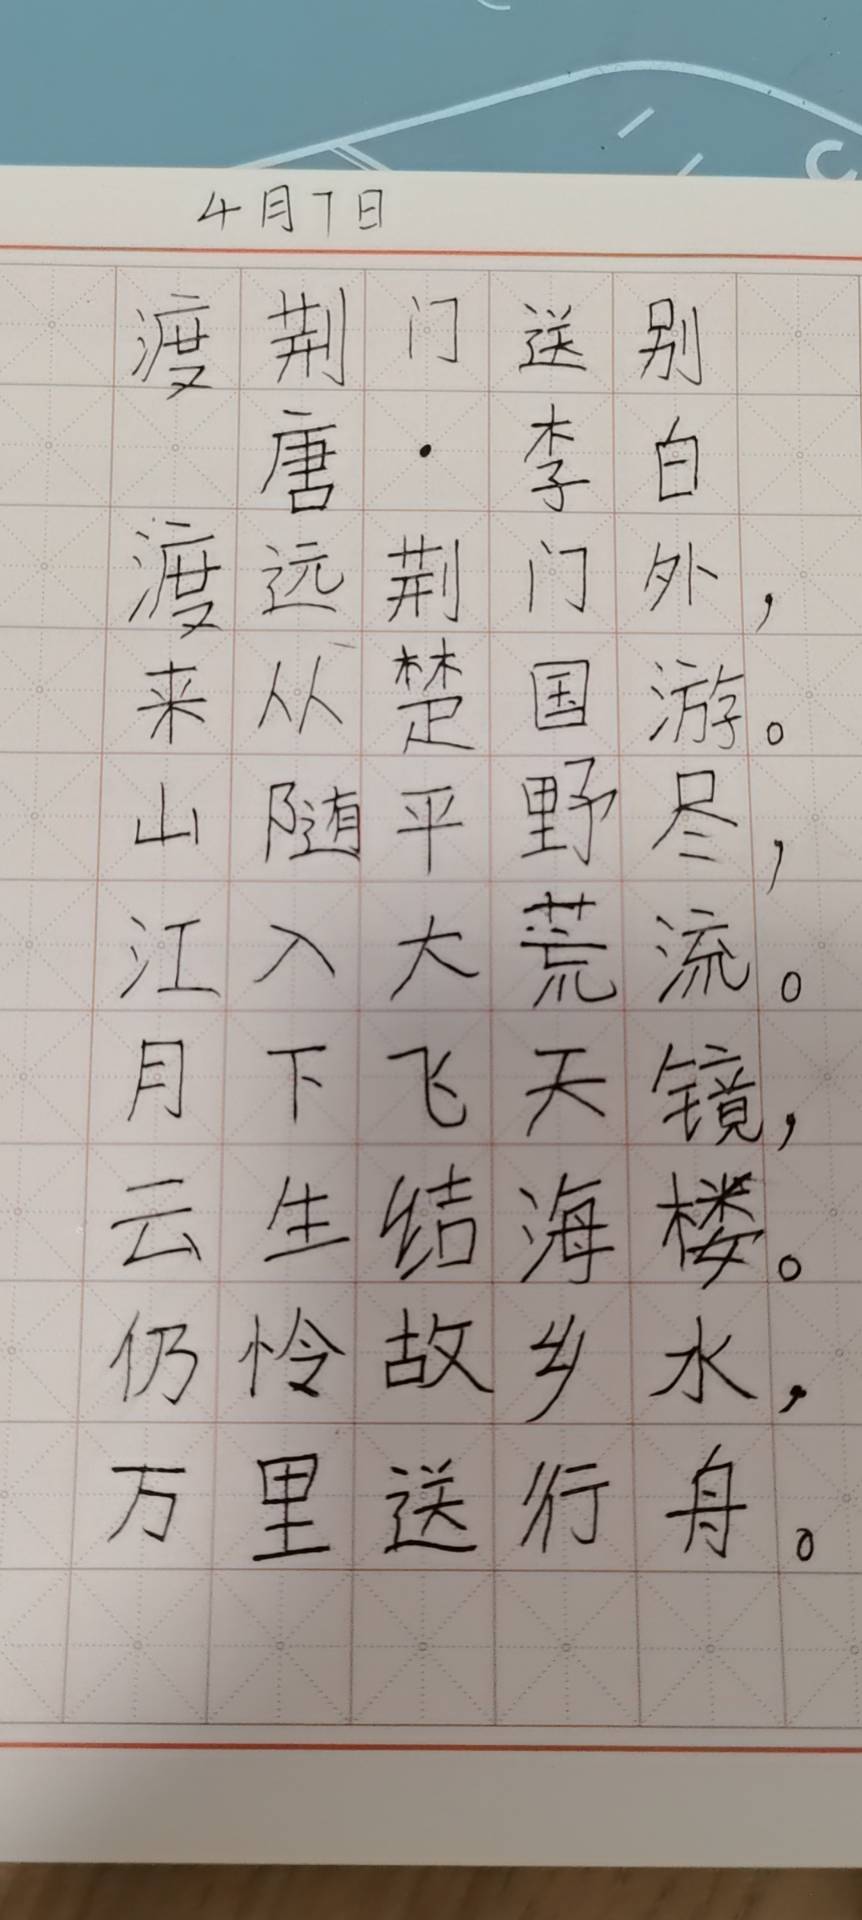 4月7日
渡荆门送别
唐·李白
渡远荆门外，
来从楚国游。
山随平野尽，
江入大荒流。
月下飞天镜，
云生结海楼。
仍怜故乡水，
万里送行舟。